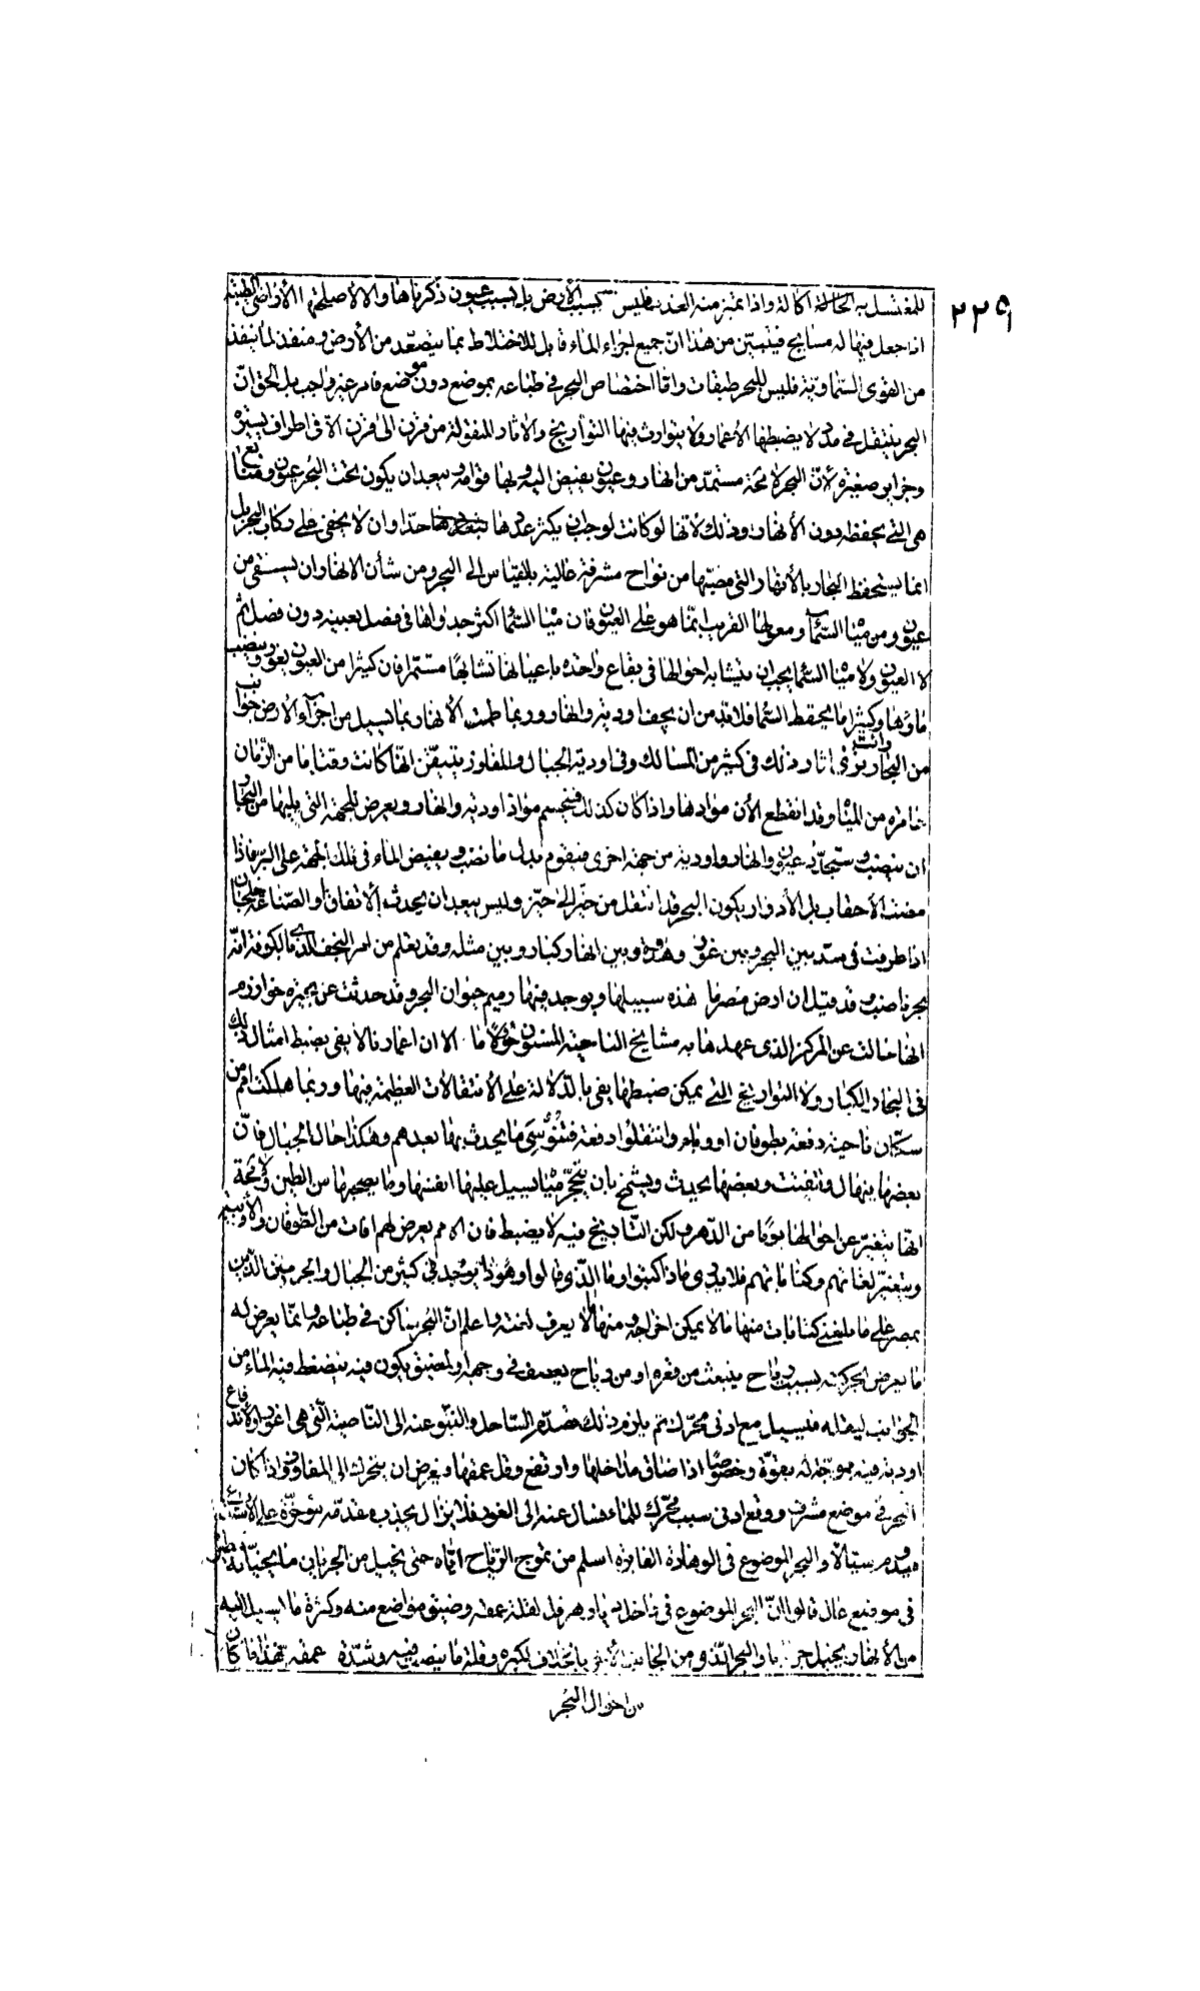 ٢٢٩
للمغتسل به الحال اكالة واذا تميز منه العذب فليس بسبب الأرض بل بسبب عيون ذكرناها والا الأصلية الأراضى الطينة
اذا جعل فيها له مسابح فيتبين من هذا ان جميع اجزاء الماء قابل للاختلاط بما يتصعد من الأرض ومنفذ لما ينفذ
من القوى السماوية فليس للبحر طبقات واما اختصاص البحر فى طباعه بموضع دون موضع فامر غير واجب بل الحق ان
البحر ينتقل فى مدد لا يضبطها الأعمار ولا يتوارث فيها التواريخ والآثار المنقولة من قرن الى قرن الا فى اطراف يسيرة
وجزاير صغيرة لأن البحر لا محة مستمد من انهار وعيون يفيض اليه وبها قوامه ويبعد ان يكون تحت البحر عيون ومنابع
هى التى يحفظه دون الأنهار وذلك لأنها لو كانت لوجب ان يكثر عددها جدا وان لا يخفى على ركاب البحر بل
انما يستحفظ البحار بالأنهار التى مصبها من نواح مشرفة عالية بالقياس الى البحر ومن شأن الأنهار ان يستقى من
عيون ومن مياه السماء ومعولها القريب انما هو على العيون فان مياه السماء اكثر جدواها فى فصل بعينه دون فصل ثم
لا العيون ولا مياه السماء يجب ان يتشابه احوالها فى بقاع واحدة باعيانها تشابها مستمرا فان كثيرا من العيون يغور وينضب
ماؤها وكثيرا ما يحقط السماء فلا بد من ان يجف اودية وانهار وربما طمت الأنهار بما يسيل من اجزاء الأرض جوانب
من البحار وانت ترى آثار ذلك فى كثير من المسالك وفى اودية الجبال والمفاوز يتيقن انها كانت وقتا ما من الزمان
غامرة من المياه وقد انقطع الأن موادها واذا كان كذلك فينحسم مواد اودية وانهار ويعرض للجهة التى يليها من البحار
ان ينضب ويستجد عيون وانهار واودية من جهة اخرى فيقوم بدل ما نضب ويفيض الماء فى تلك الجهة على البر فاذا
مضت الأحقاب بل الأدوار يكون البحر قد انتقل من حيز الى حيز وليس يبعد ان يحدث الاتفاق او الصناعة خلجان
اذا طرقت فى سد بين البحر وبين غور وهدة وبين انهار كبار وبين مثله وقد يعلم من امر النجف الذى بالكوفة انه
بحر ناضب وقد قيل ان ارض مصر هذه سبيلها ويوجد فيها رميم حيوان البحر وقد حدثت عن بحيرة خوارزم
انها حالت عن المركز الذى عهدها به مشايخ الناحية المسنون حؤولا ما الا ان اعمارنا لا يفى بضبط امثال ذلك
فى البحار الكبار ولا التواريخ التى يمكن ضبطها يفى بالدلالة على الانتقالات العظيمة فيها وربما هلكت امم من
سكان ناحية دفعة بطوفان او وباء او انتقلوا دفعة فتنوسى ما يحدث بها بعدهم وهكذا حال الجبال فان
بعضها ينهال ويتفتت وبعضها يحدث ويشمخ بان يتحجر مياه يسيل عليها انفسها وما يصحبها من الطين ولا محة
انها يتغير عن احوالها يوما من الدهر ولكن التاريخ فيه لا يضبط فان الامم يعرض لهم آفات من الطوفان والأوبئة
ويتغير لغاتهم وكتاباتهم فلا يدرى ماذا كتبوا وما الذى قالوا وهوذا يوجد فى كثير من الجبال والهرمين الذين
بمصر على ما بلغنى كتابات منها ما لا يمكن اخراجه ومنها لا يعرف لغته واعلم ان البحر ساكن فى طباعه وانما يعرض له
ما يعرض الحركته بسبب رياح ينبعث من قعره او من رياح يعصف فى وجهه او لمضيق يكون فيه ينضغط فيه الماء من
الجوانب لثقله فيسيل مع ادنى محرك ثم يلزم ذلك هدم الساحل والنبو عنه الى الناحية التى هى اغور ولاندفاع
اودية فيه موجة له بقوة وخصوصا اذا ضاق مداخلها وارتفع وقل عمقها ويعرض ان يتحرك الى المغاوص واذا كان
البحر فى موضع مشرف ووقع ادنى سبب محرك للماء فسال عنه الى الغور فلا يزال يجذب مقدمه مؤخره
فيدوم سيالا والبحر الموضوع فى الوهادة الغائرة اسلم من تموج الرياح اياه حتى يخيل من الجريان
فى موضع عال قالوا ان البحر الموضوع فى داخل لقلة عمقه وضيق مواضع منه وكثرة ما ليسيل اليه
من الأنهار يخيل والبحر الذى من الجانب بالخلاف لكبره وقلة ما ينصب فيه وشدة عمقه فهذا ما كان
من احوال البحر